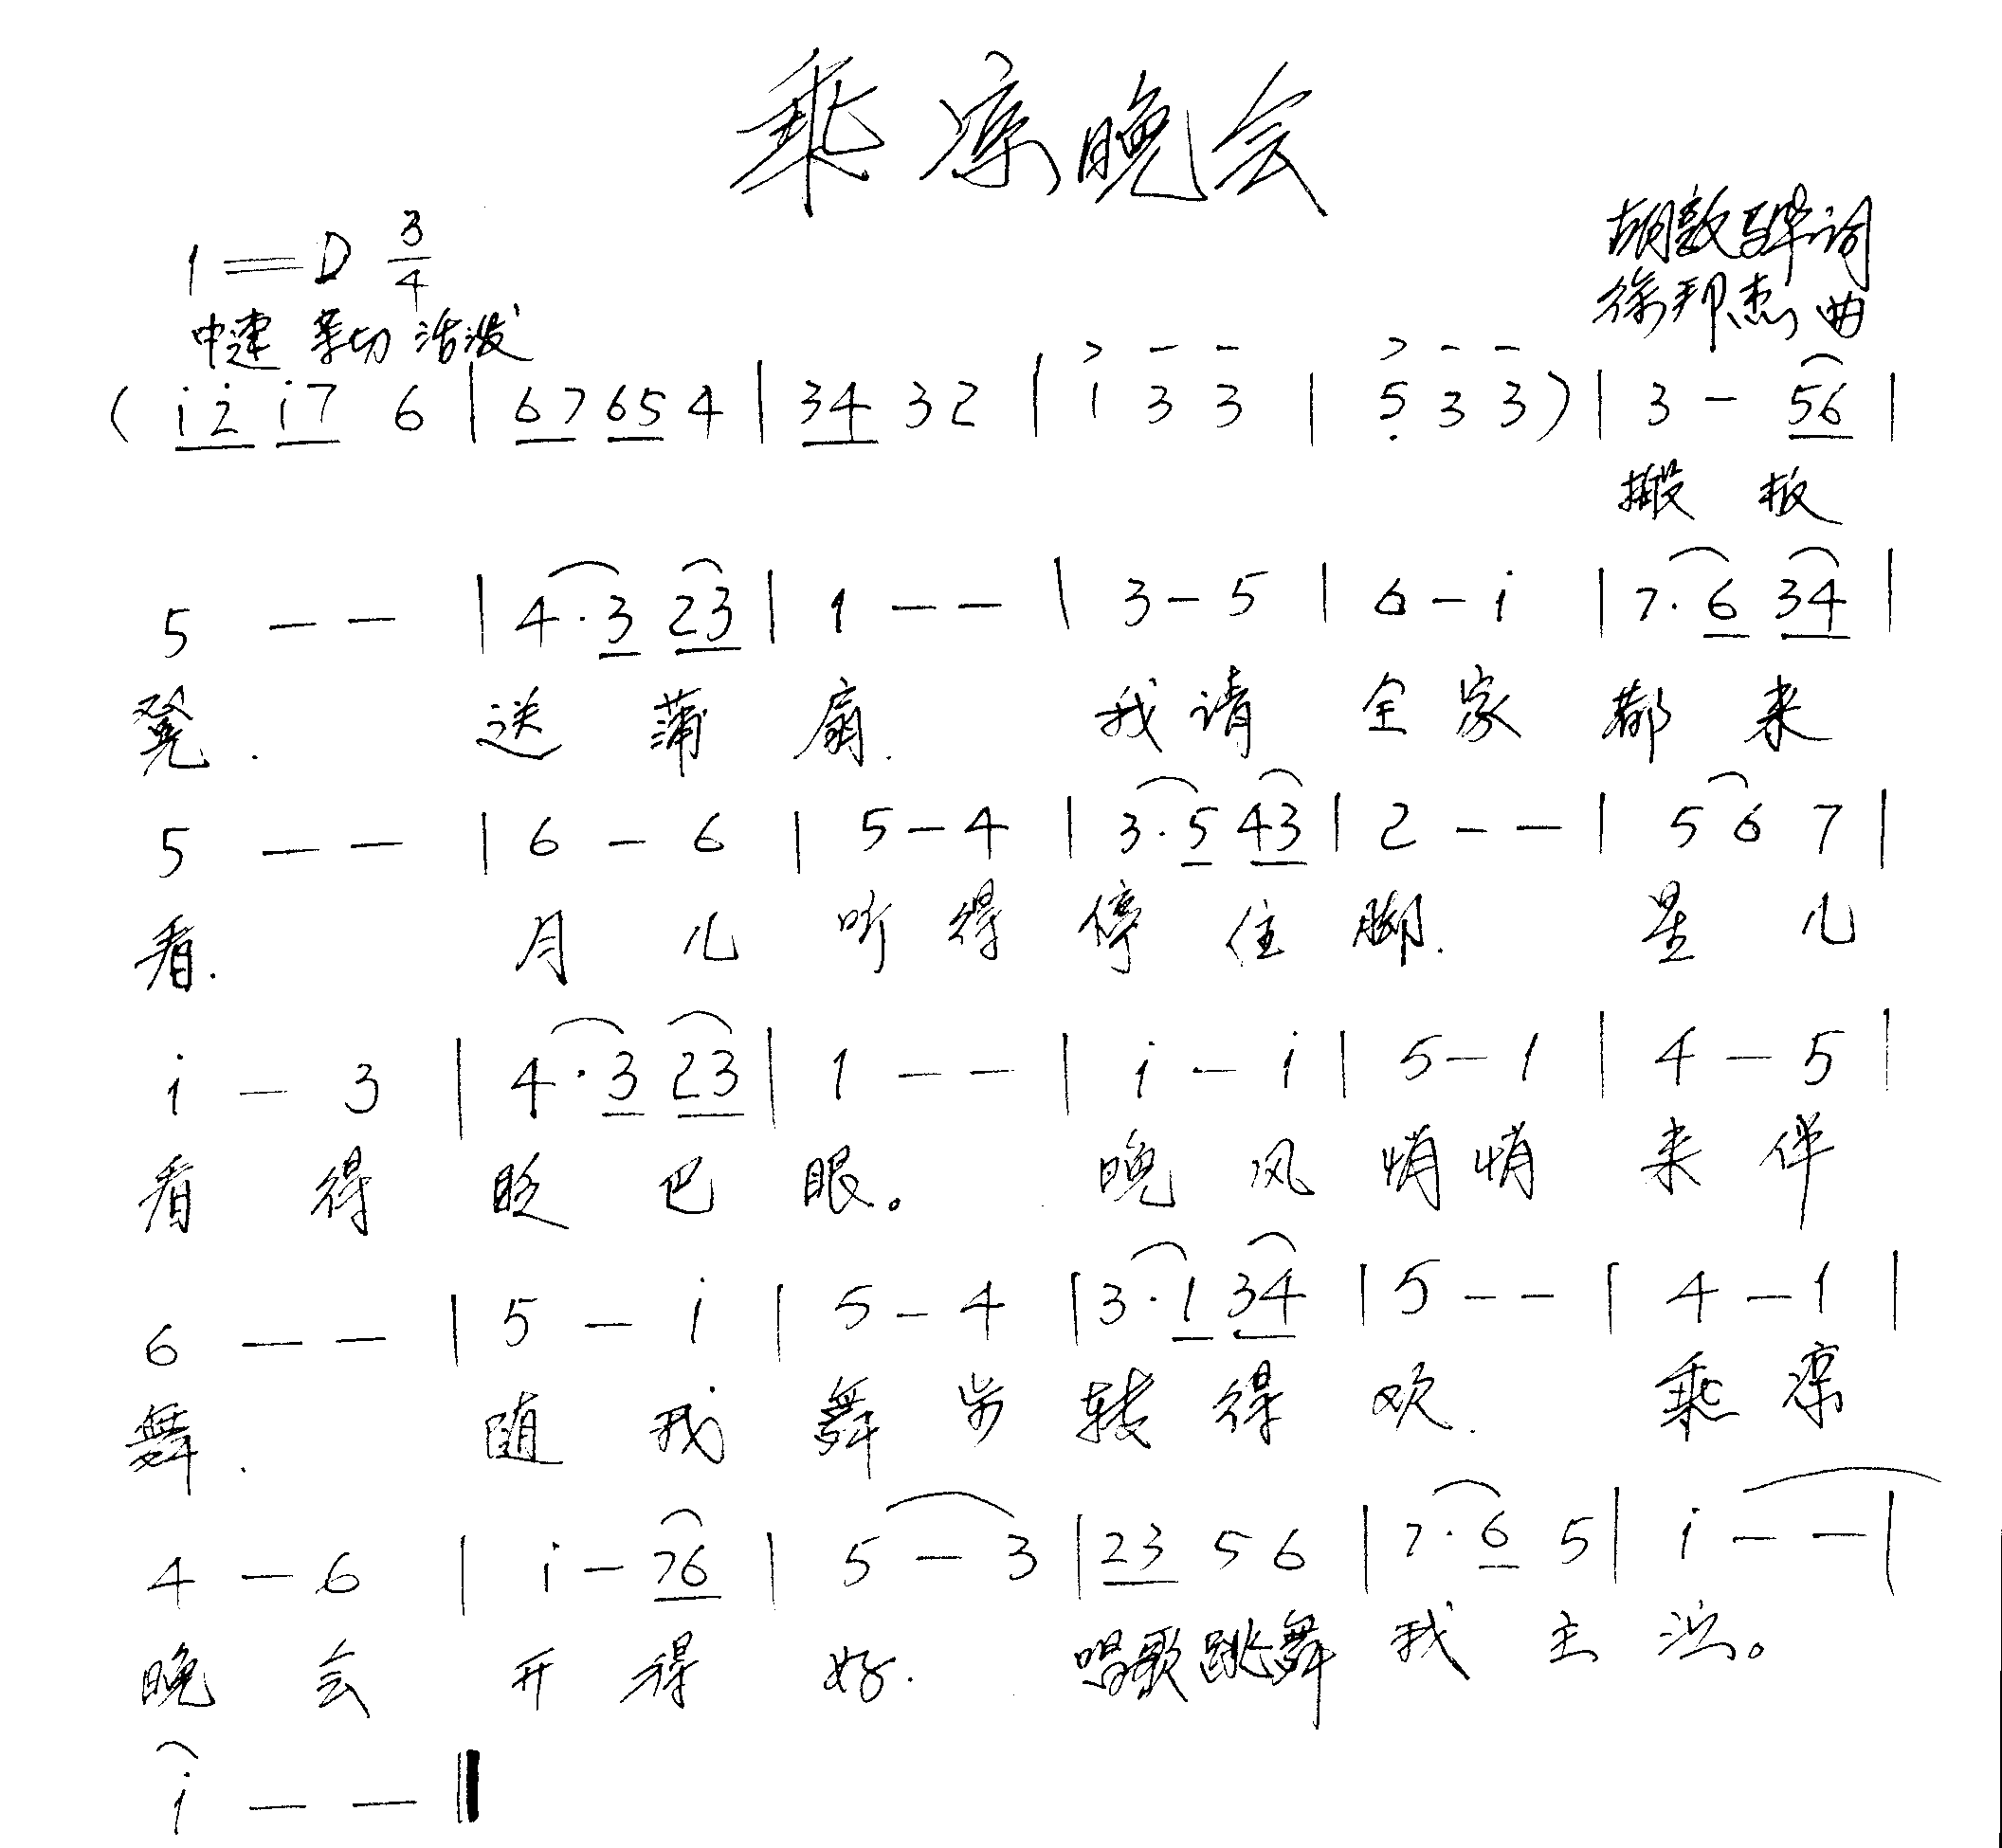 乘凉晚会
1=D 3/4
胡敦骅词
中速 亲切 活泼
徐邦杰曲
( i̇ 2̇ i̇ 7 6 | 6 7 6 5 4 | 3 4 3 2 | 1 3 3 | 5̣ 3 3 ) | 3 - 5 6 |
搬 板
5 - - | 4 · 3 2 3 | 1 - - | 3 - 5 | 6 - i | 7 · 6 3 4 |
凳. 送 蒲 扇. 我 请 全 家 都 来
5 - - | 6 - 6 | 5 - 4 | 3 · 5 4 3 | 2 - - | 5 6 7 |
看. 月 儿 听 得 停 住 脚. 星 儿
i - 3 | 4 · 3 2 3 | 1 - - | i - i | 5 - 1 | 4 - 5 |
看 得 眨 巴 眼。 晚 风 悄 悄 来 伴
6 - - | 5 - i | 5 - 4 | 3 · 1 3 4 | 5 - - | 4 - 1 |
舞. 随 我 舞 步 转 得 欢. 乘 凉
4 - 6 | i - 7 6 | 5 - 3 | 2 3 5 6 | 7 · 6 5 | i - - |
晚 会 开 得 好. 唱 歌 跳 舞 我 主 演。
i - - ‖